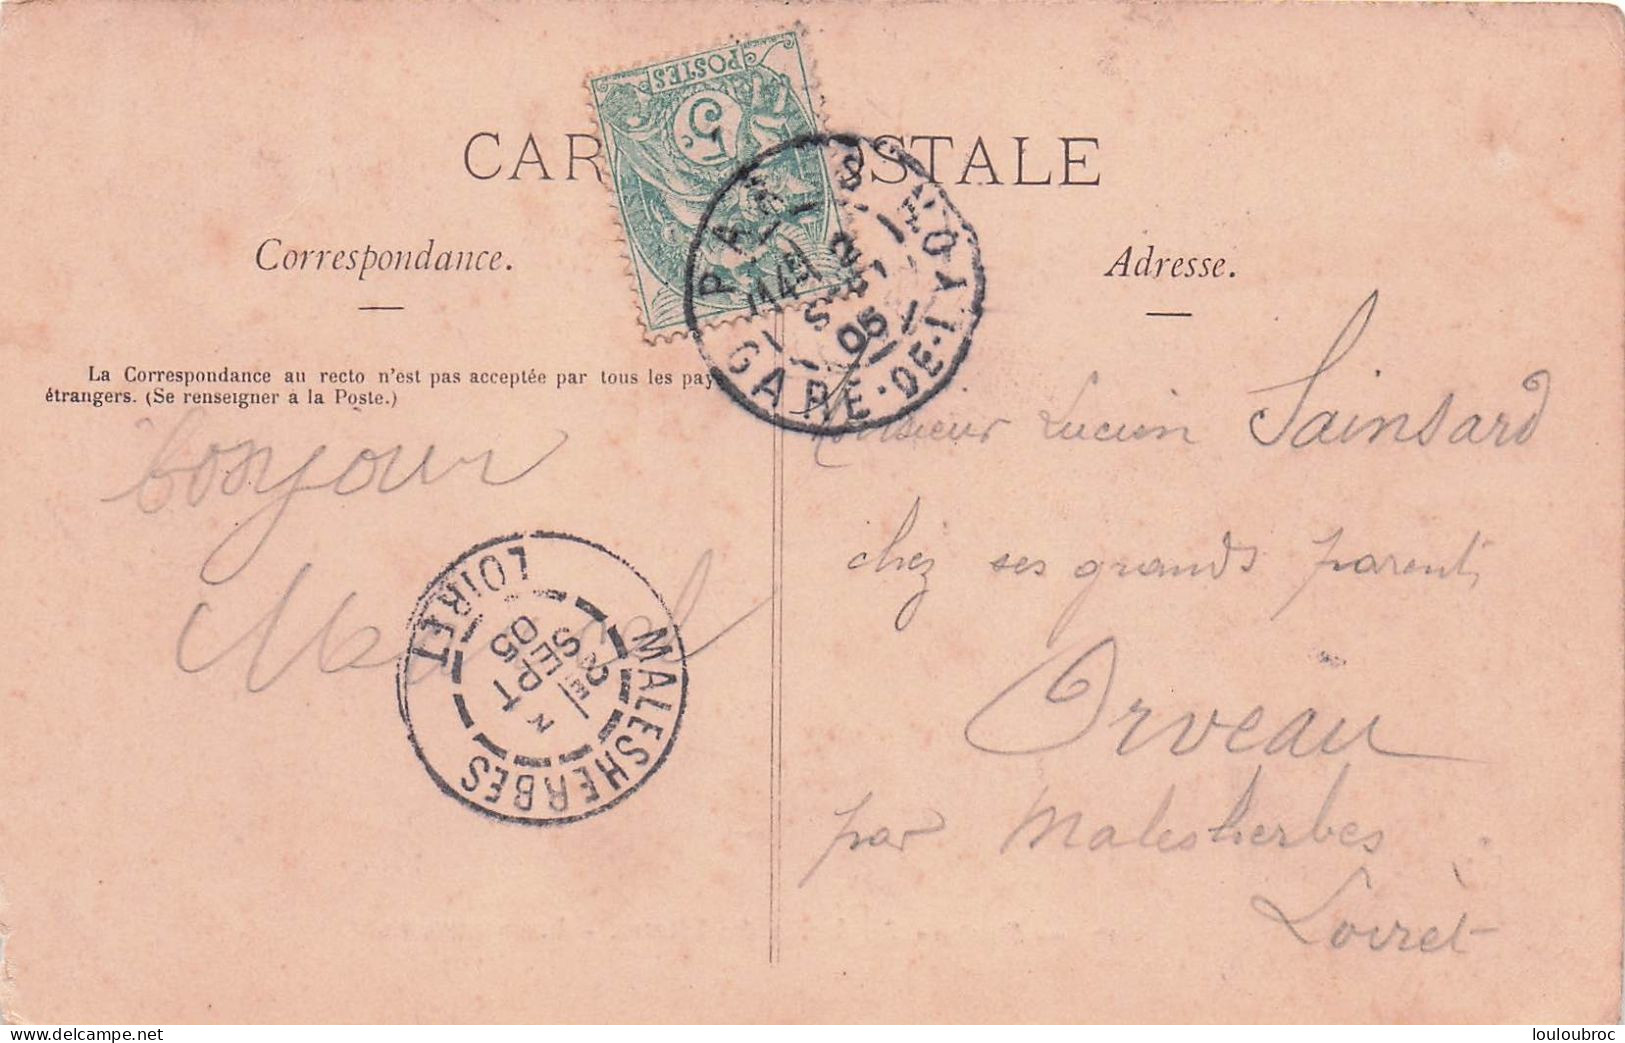 POSTES
5c
CARTE POSTALE
PARIS GARE-DE-LYON
2 SEPT
05
Correspondance.
Adresse.
La Correspondance au recto n'est pas acceptée par tous les pays
étrangers. (Se renseigner a la Poste.)
bonjour
Marcel
MALESHERBES LOIRET
2E
2
SEPT
05
Monsieur Lucien Sainsard
chez ses grands parents
Orveau
par Malesherbes
Loiret
delcampe.net
louloubroc